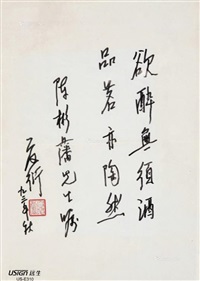 欲醉無須酒
品茗亦陶然
陈彬藩先生嘱
夏衍
九三年秋
USIGN 远生
US-E310